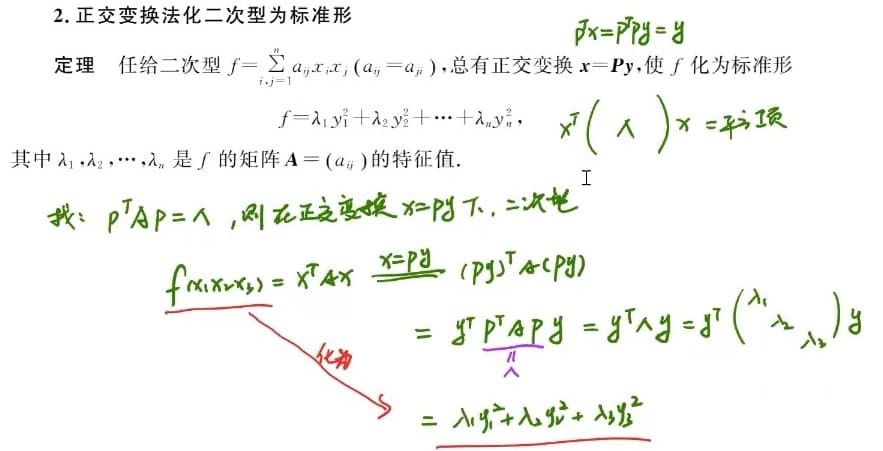 2. 正交变换法化二次型为标准形
pᵀx=pᵀpy=y
定理 任给二次型 f=∑ⁿᵢ,ⱼ₌₁ aᵢⱼxᵢxⱼ(aᵢⱼ=aⱼᵢ),总有正交变换 x=Py,使 f 化为标准形
f=λ₁y₁²+λ₂y₂²+⋯+λₙyₙ²,
xᵀ( Λ )x=平方项
其中 λ₁,λ₂,⋯,λₙ 是 f 的矩阵 A=(aᵢⱼ)的特征值.
找: pᵀAp=Λ,则在正交变换 x=py下,二次型
f(x₁x₂x₃)=xᵀAx x=py (py)ᵀA(py)
= yᵀpᵀApy = yᵀΛy = yᵀ(λ₁ λ₂ λ₃)y
= Λ
化为
= λ₁y₁²+λ₂y₂²+λ₃y₃²